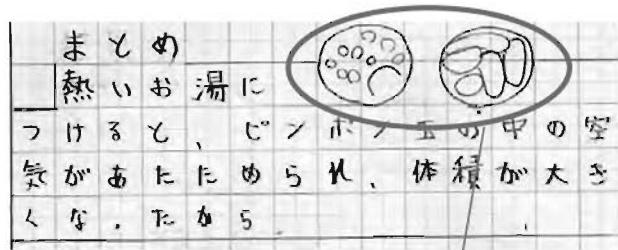 まとめ
熱いお湯に
つけると、ピンポン玉の中の空
気があたためられ、体積が大き
くなったから